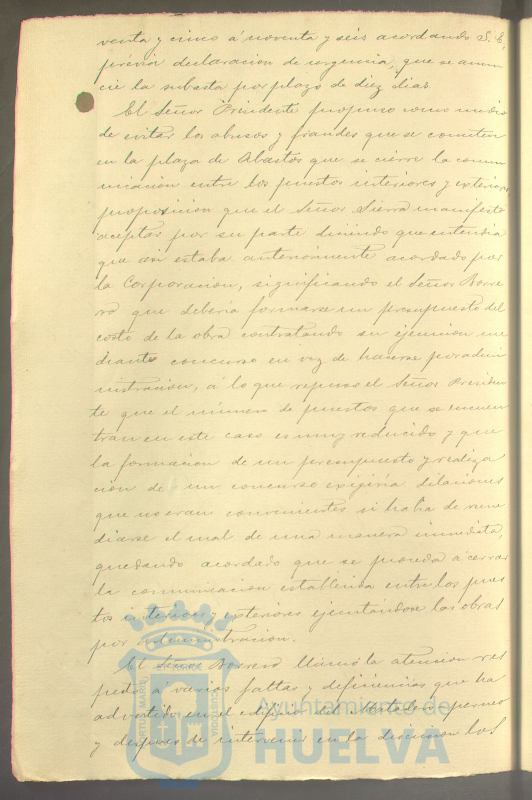 venta y cinco á noventa y seis acordando S. E,
prévia declaracion de urgencia, que se anun
cie la subasta por plazo de diez dias.
El Señor Presidente propuso como medio
de evitar los abusos y fraudes que se cometen
en la plaza de Abastos que se cierre la comu
nicacion entre los puestos interiores y exteriores
proposicion que el Señor Sierra manifestó
aceptar por su parte diciendo que entendia
que asi estaba anteriormente acordado por
la Corporacion, significando el Señor Borre
ro que deberia formarse un presupuesto del
costo de la obra contratando su ejecucion me
diante concurso en vez de hacerse por admi
nistracion, á lo que repuso el Señor Presiden
te que el número de puestos que se encuen
tran en este caso es muy reducido y que
la formacion de un presupuesto y realiza
cion de un concurso exigiria dilaciones
que no eran convenientes si habia de reme
diarse el mal de una manera inmediata,
quedando acordado que se proceda á cerrar
la comunicacion establecida entre los pues
tos interiores y exteriores ejecutándose las obras
por administracion.
El Señor Borrero llamó la atencion res
pecto á varias faltas y deficiencias que ha
advertido en el edificio del Matadero
y despues de intervenir en la discusion los
Ayuntamiento de
HUELVA